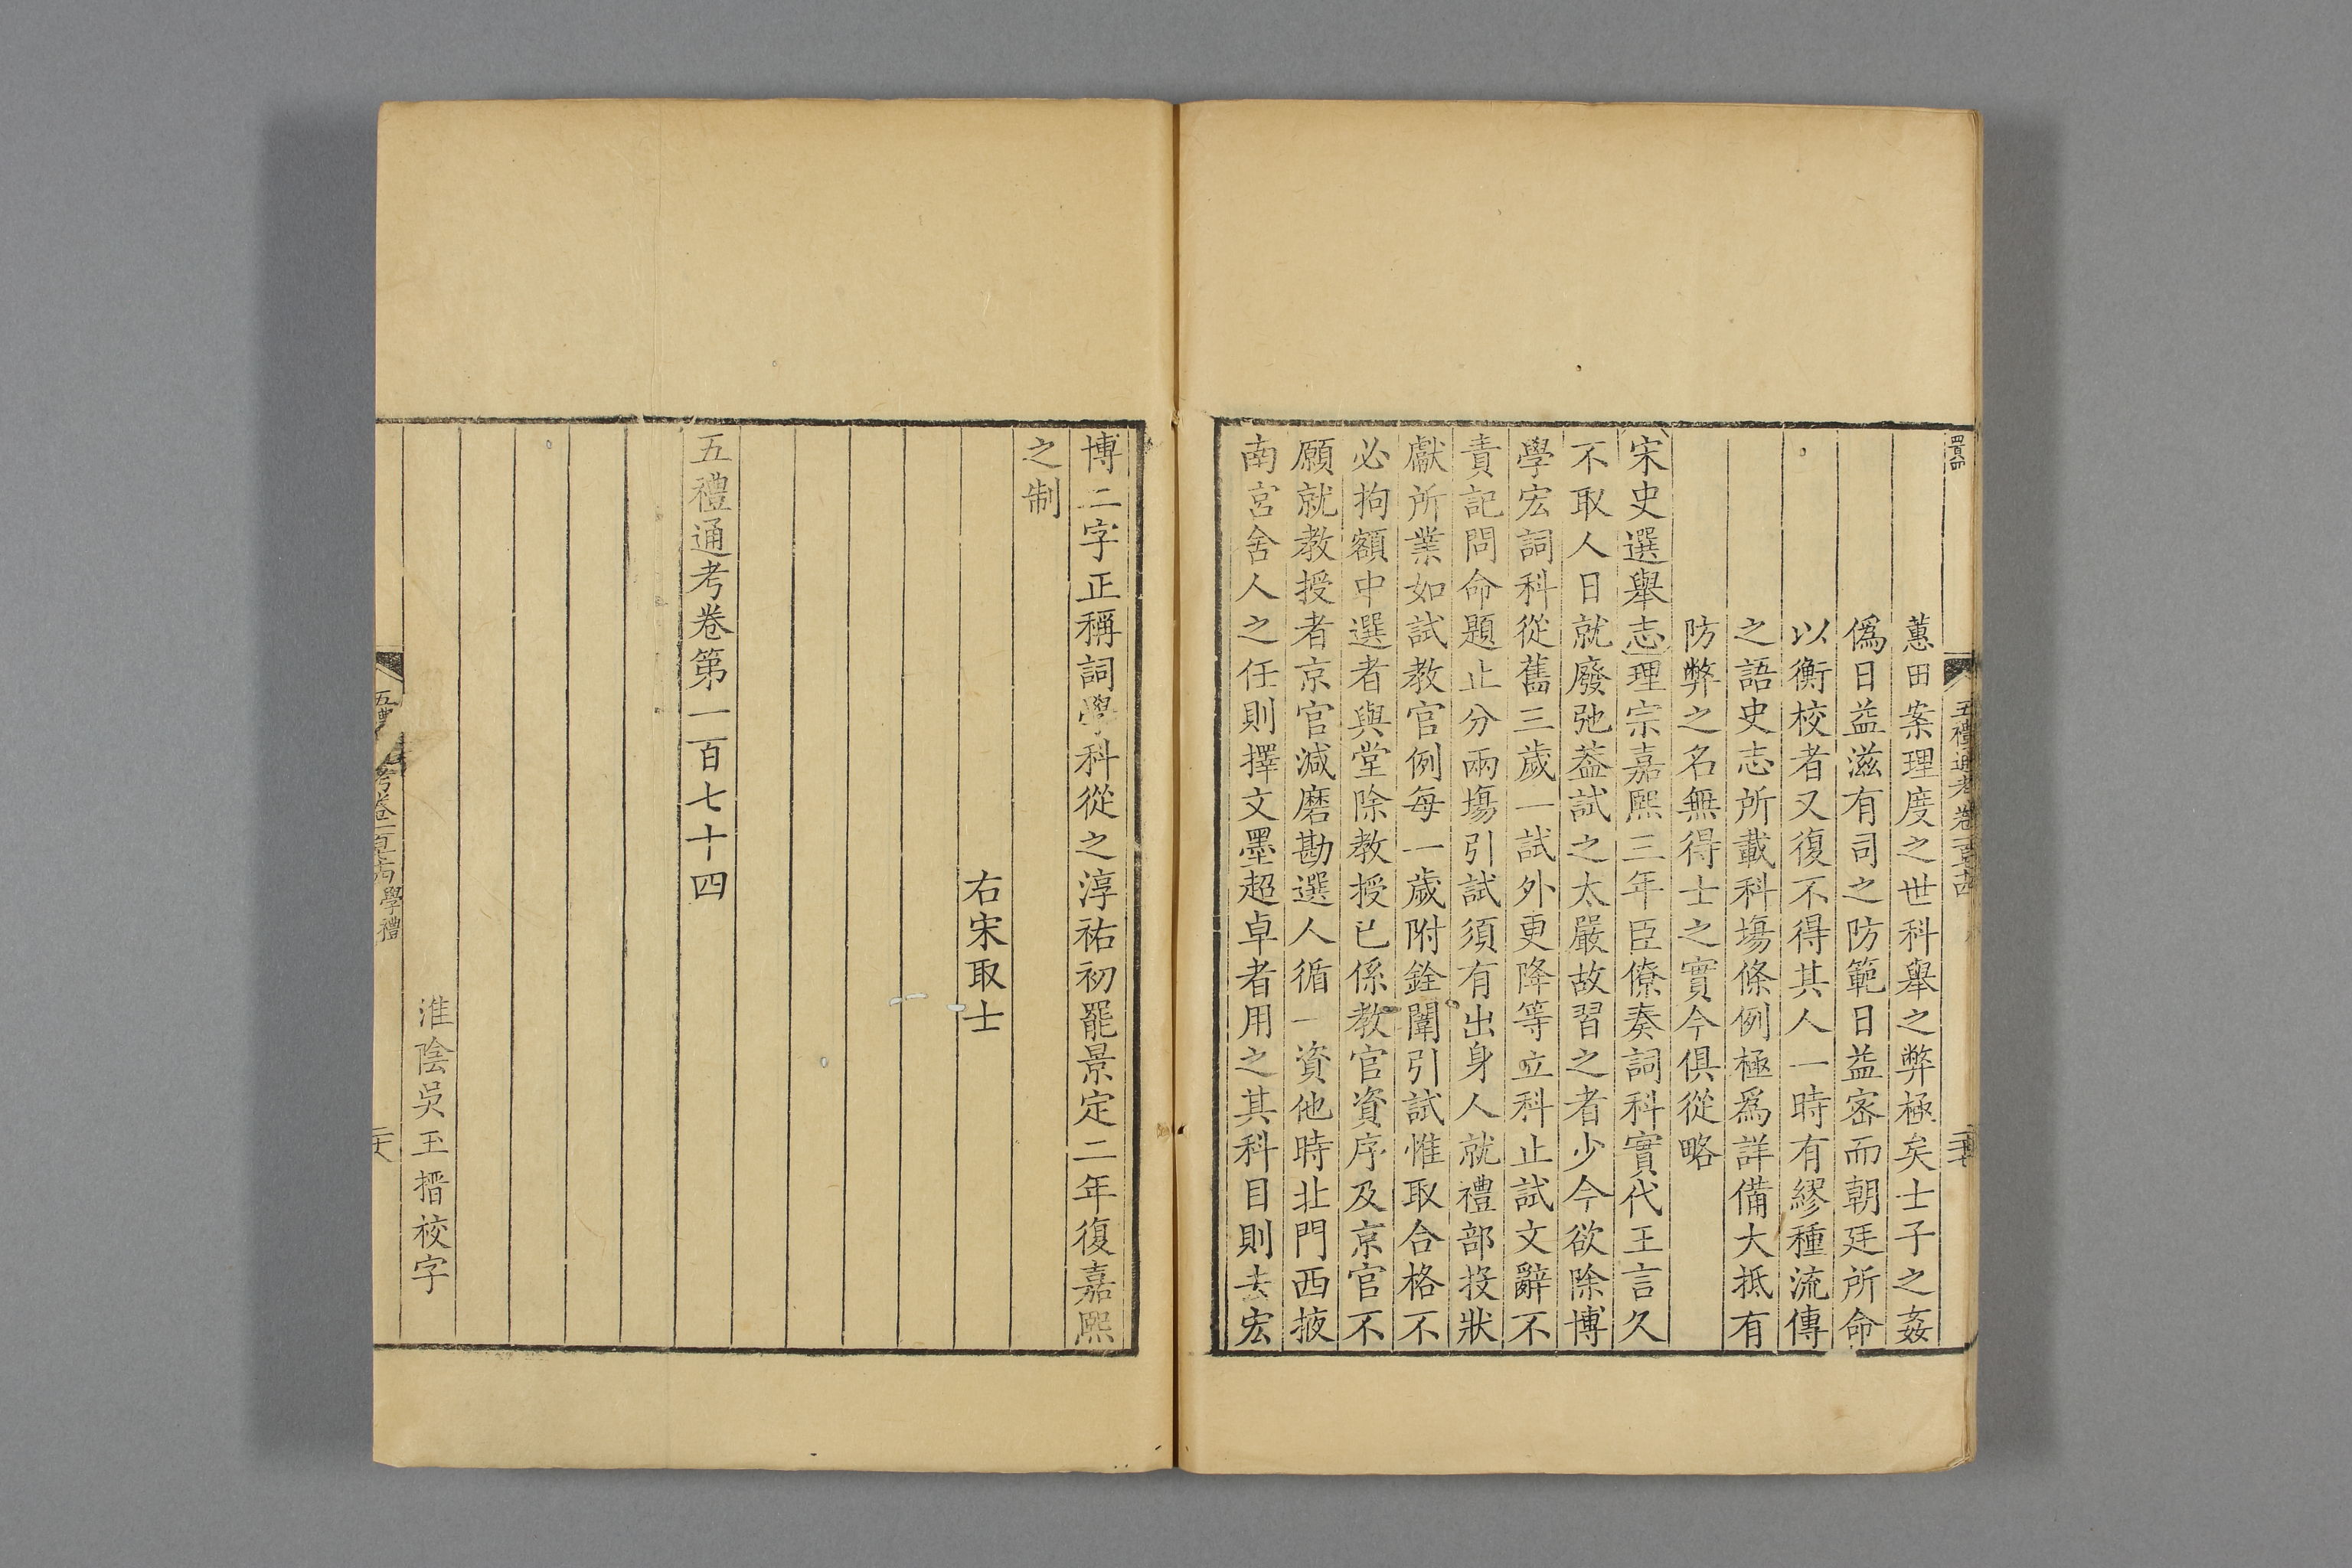 五禮通考卷一百七十四
蕙田案理度之世科舉之弊極矣士子之姦
僞日益滋有司之防範日益密而朝廷所命
以衡校者又復不得其人一時有繆種流傳
之語史志所載科塲條例極爲詳備大抵有
防弊之名無得士之實今俱從略
宋史選舉志理宗嘉熙三年臣僚奏詞科實代王言久
不取人日就廢弛葢試之太嚴故習之者少今欲除博
學宏詞科從舊三歲一試外更降等立科止試文辭不
責記問命題止分兩塲引試須有出身人就禮部投狀
獻所業如試教官例每一歲附銓闈引試惟取合格不
必拘額中選者與堂除教授已係教官資序及京官不
願就教授者京官減磨勘選人循一資他時北門西掖
南宮舍人之任則擇文墨超卓者用之其科目則去宏
博二字正稱詞學科從之淳祐初罷景定二年復嘉熙
之制
右宋取士
五禮通考卷第一百七十四
淮陰吳玉搢校字
學禮